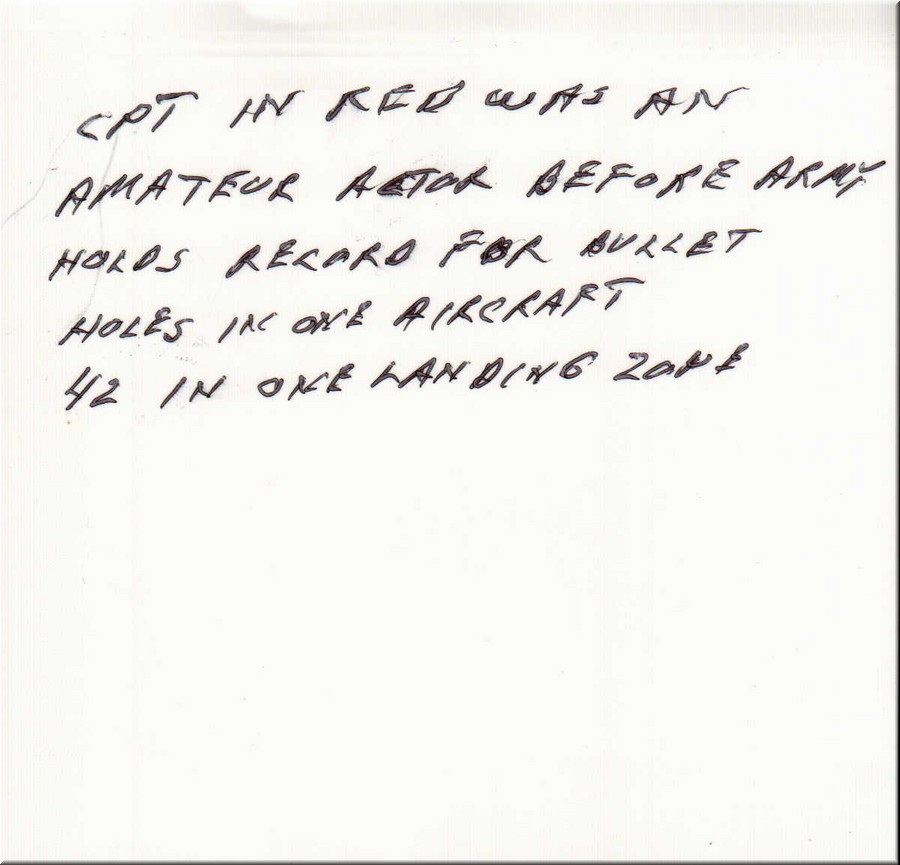 CPT IN RED WAS AN
AMATEUR ACTOR BEFORE ARMY
HOLDS RECORD FOR BULLET
HOLES IN ONE AIRCRAFT
42 IN ONE LANDING ZONE